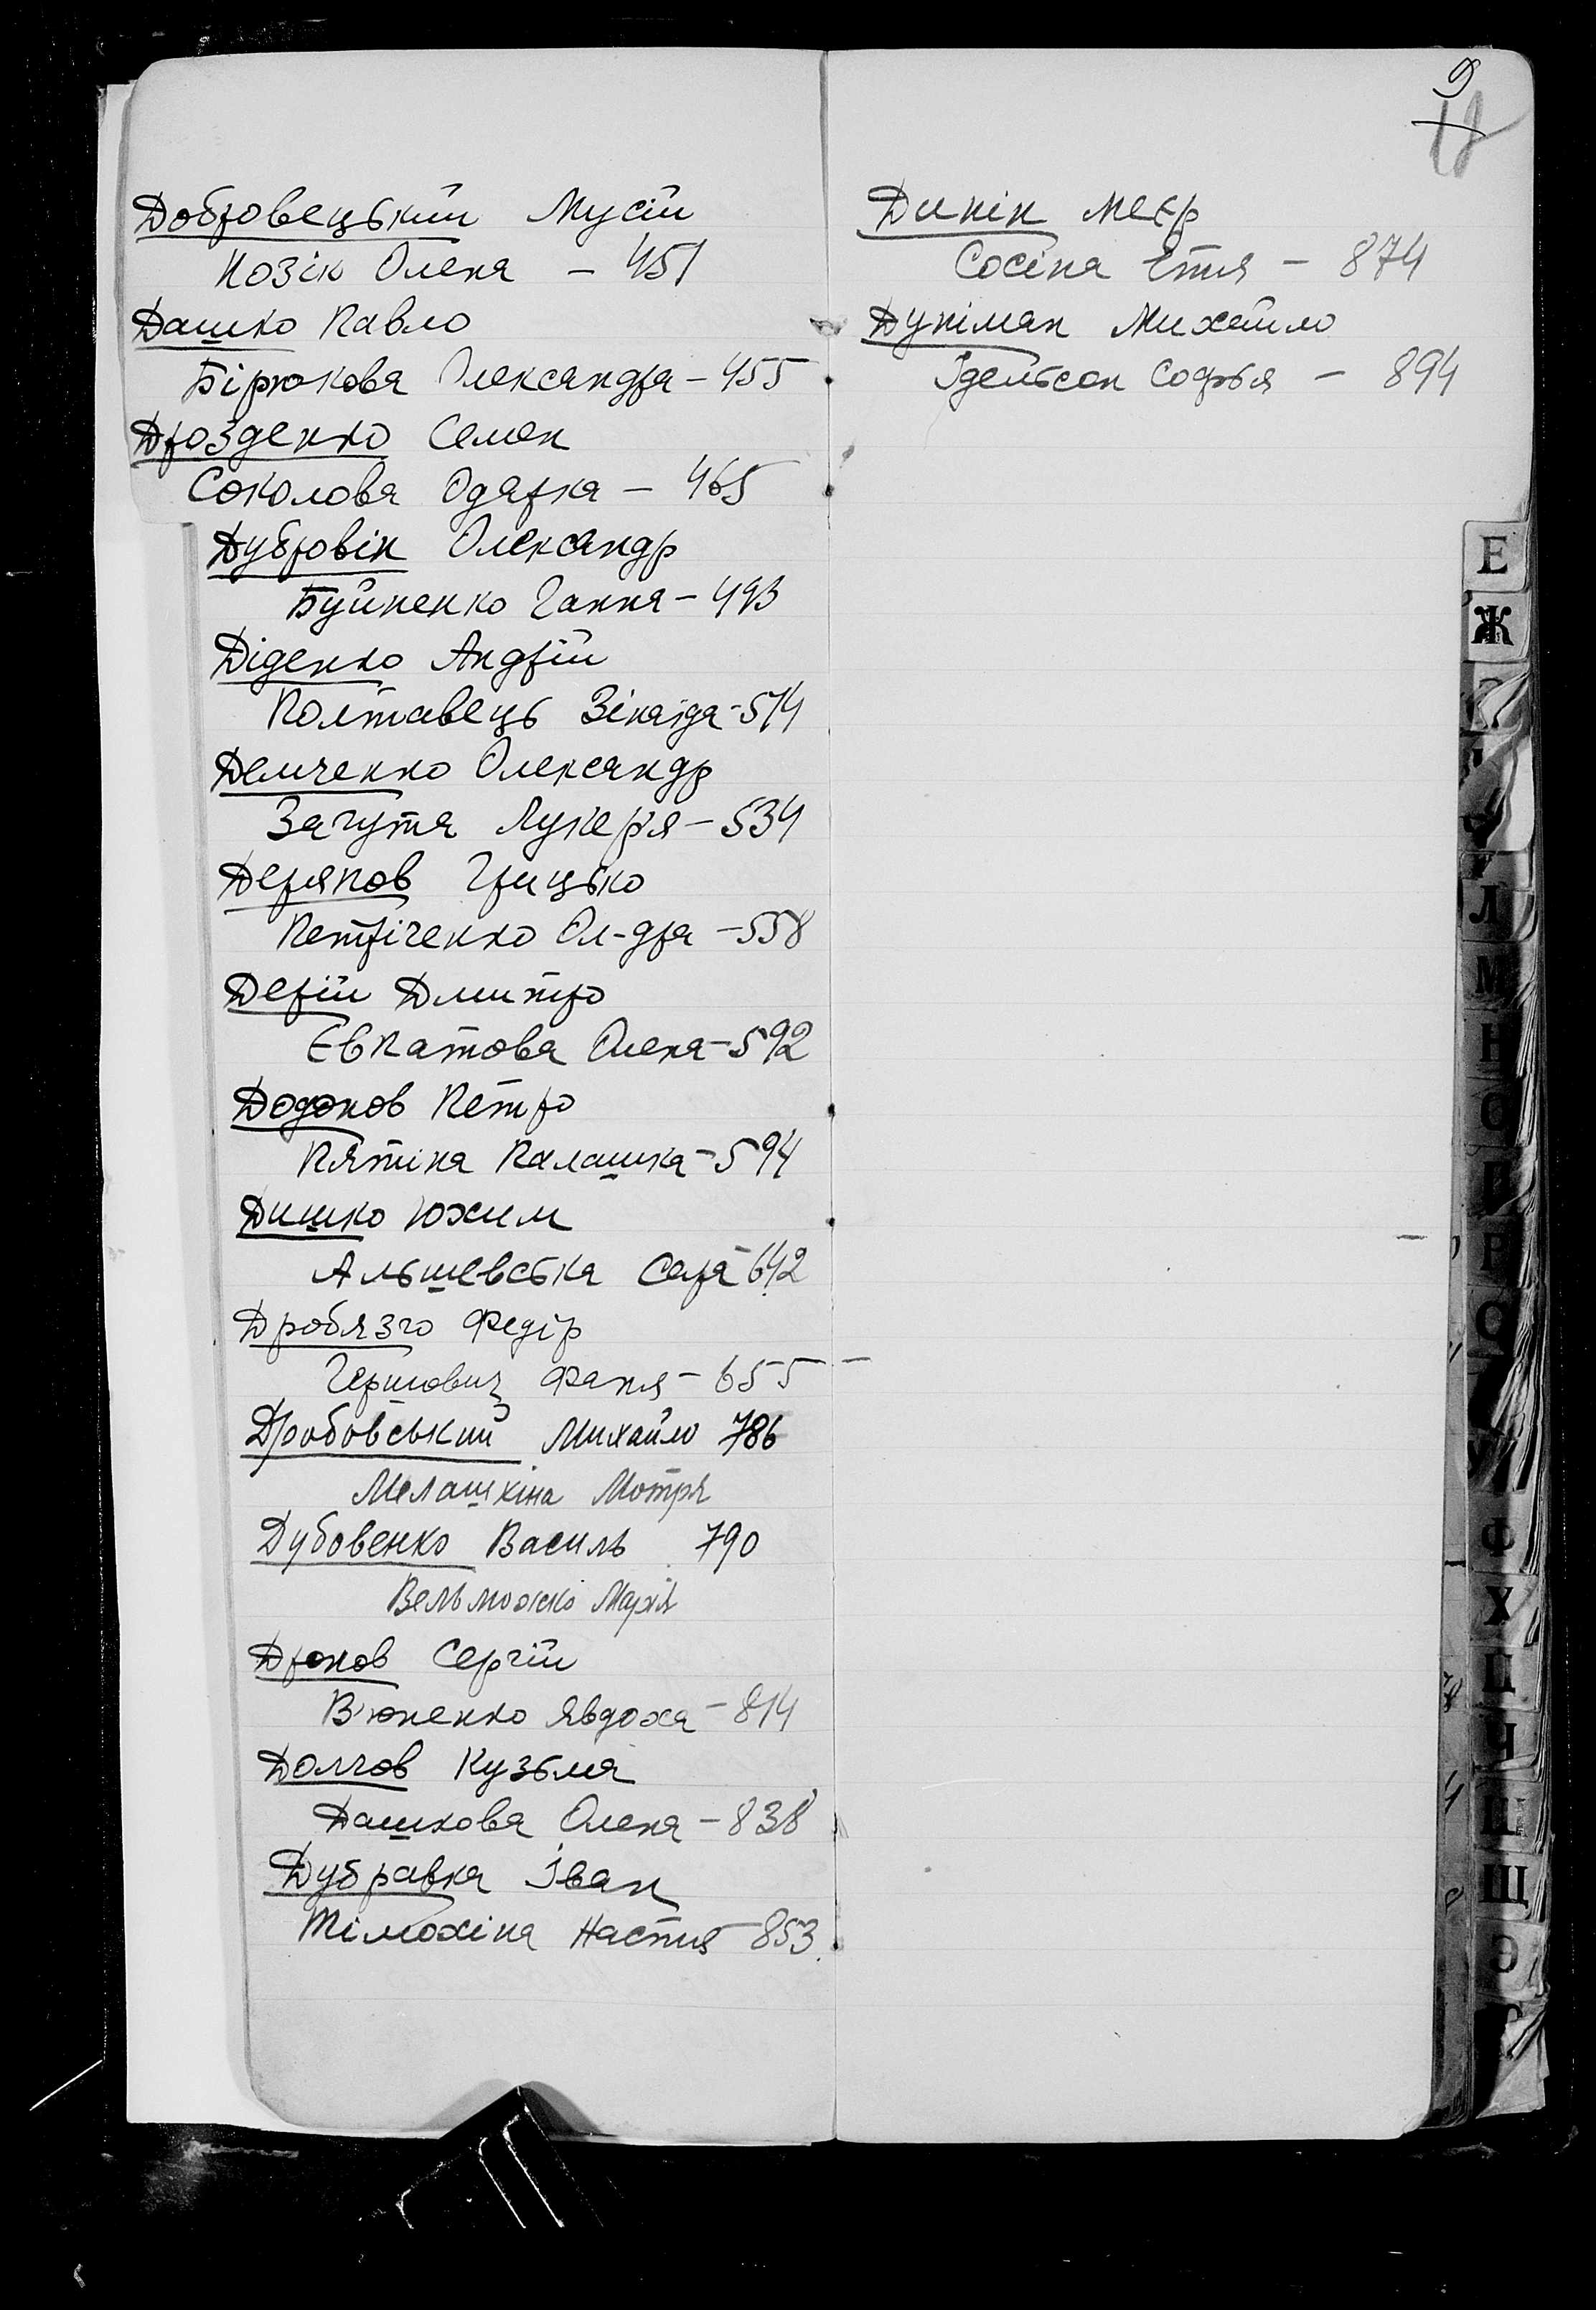 Добровецький Мусій
Козік Олена - 451
Дашко Павло
Бірюкова Олександра - 455
Дрозденко Семен
Соколова Одарка - 465
Дубровін Олександр
Буйненко Ганна - 493
Діденко Андрій
Полтавець Зінаїда - 514
Демченко Олександр
Загута Лукер'я - 534
Дерянов Грицько
Петріченко Ол-дра - 558
Дерій Дмитро
Євпатова Олена - 592
Додонов Петро
Пятіна Палашка - 594
Дишко Юхим
Альшевська Сара - 642
Дроблязго Федір
Гершович Фаня - 655
Дробовський Михайло 786
Мелашкіна Мотря
Дубовенко Василь 790
Вельможко Марія
Дронов Сергій
В'юненко Явдоха - 814
Долгов Кузьма
Дашкова Олена - 838
Дубравка Іван
Тімохіна Настя - 853
9
12
Динін Меєр
Сосіна Етя - 874
Дунiман Михайло
Ідельсон Софья - 894
Е
Ж
Л
М
Н
О
П
Р
С
У
Ф
Х
Ц
Ч
Щ